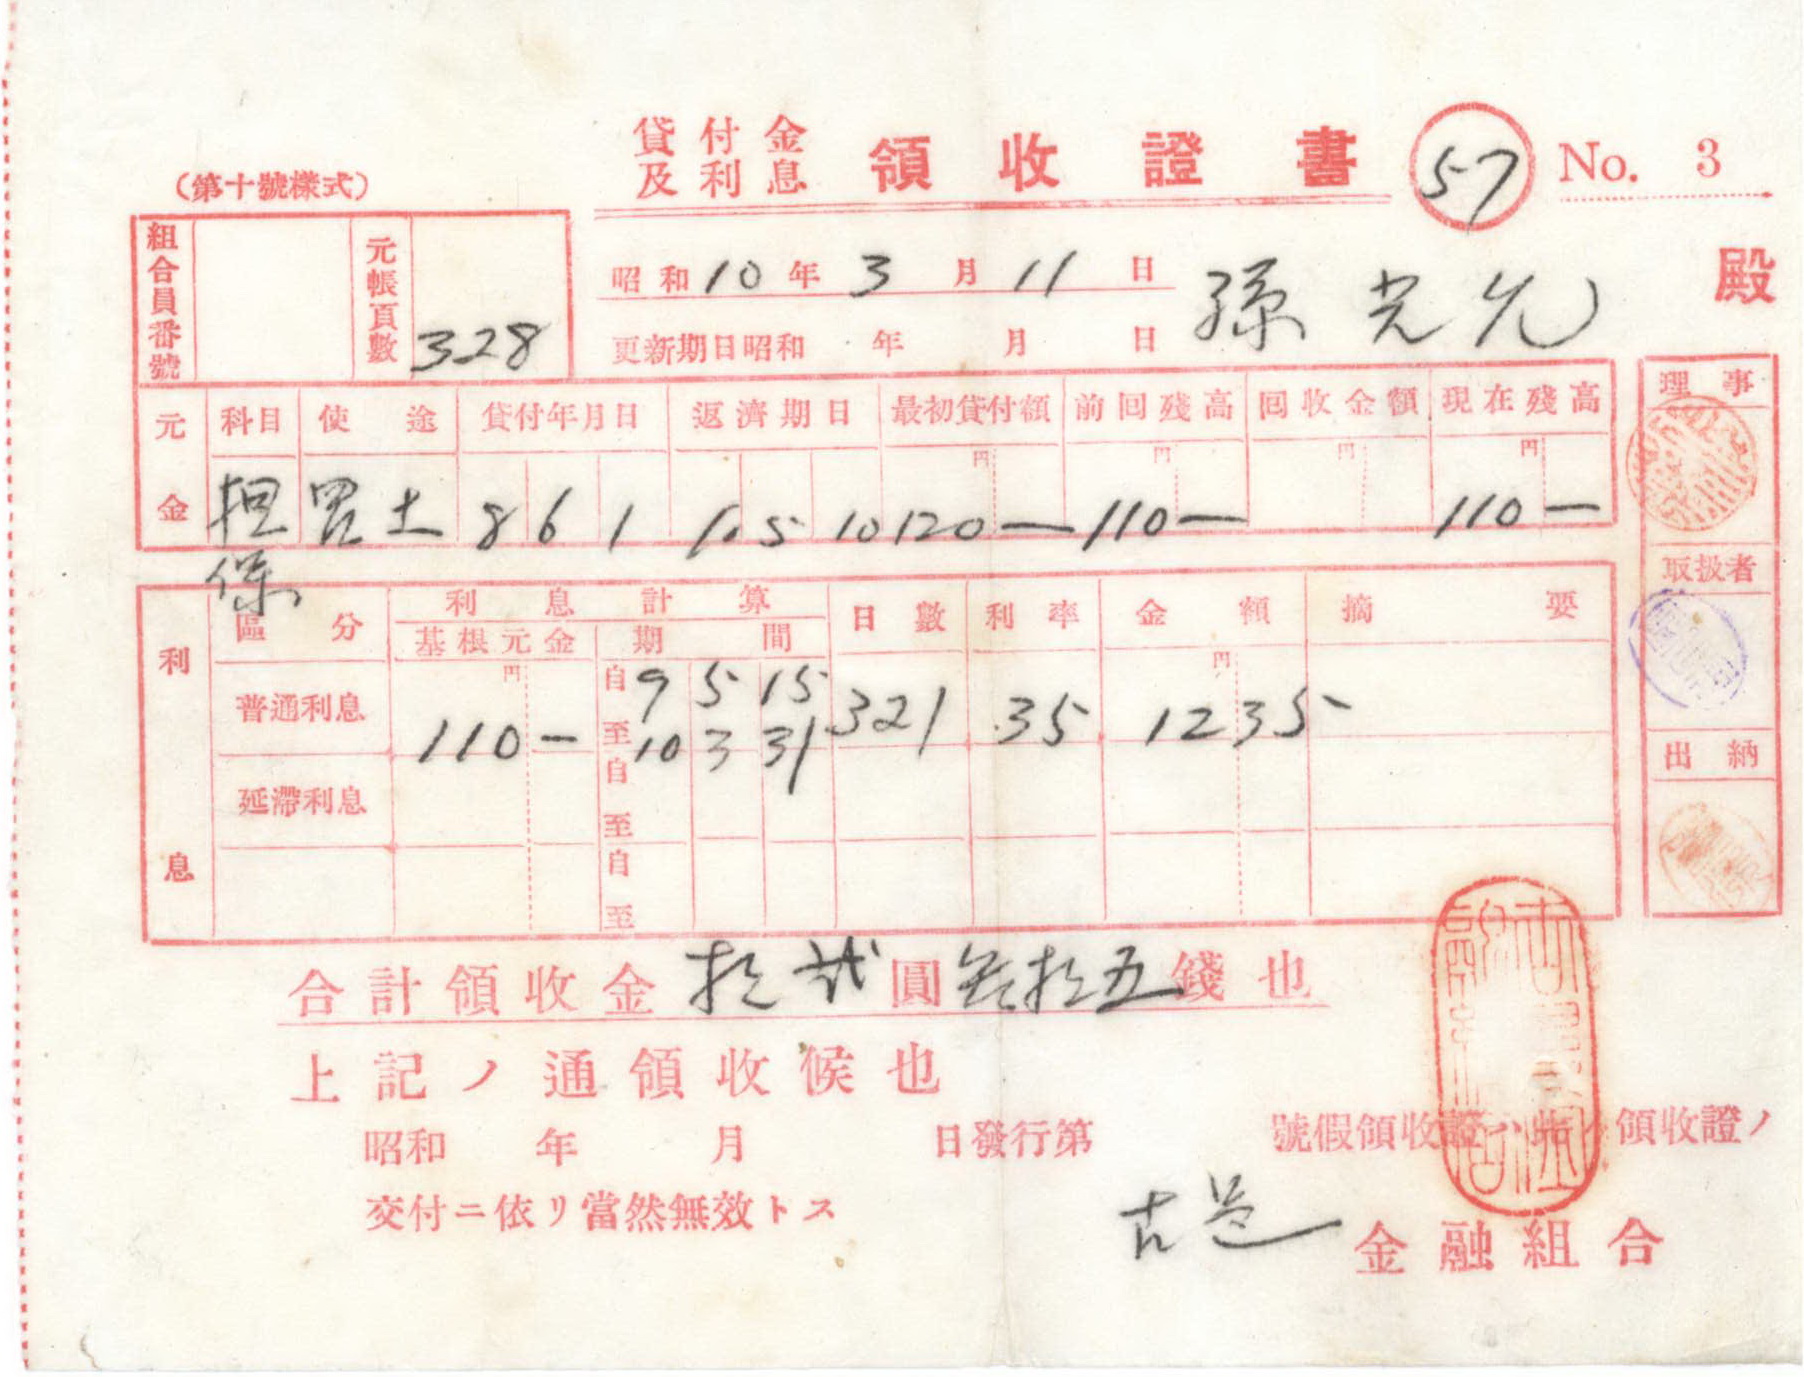 貸付金及利息 領收證書 57 No. 3
（第十號樣式）
組合員番號
元帳頁數 328
昭和10年3月11日
孫光允 殿
更新期日昭和 年 月 日
元金 科目 使途 貸付年月日 返濟期日 最初貸付額 前回残高 回收金額 現在残高
円 円 円 円
担保 買土 8 6 1 10 5 10 120— 110— 110—
利息 區分 利息計算 日數 利率 金額 摘要
基根元金 期間
円 円
普通利息 110— 自 9 5 15 至 10 3 31 321 35 1235
延滯利息 自 至
自 至
理事
取扱者
出納
合計領收金拾弐圓参拾五錢也
上記ノ通領收候也
昭和 年 月 日發行第 號假領收證ハ此ノ領收證ノ
交付ニ依リ當然無效トス
古邑 金融組合